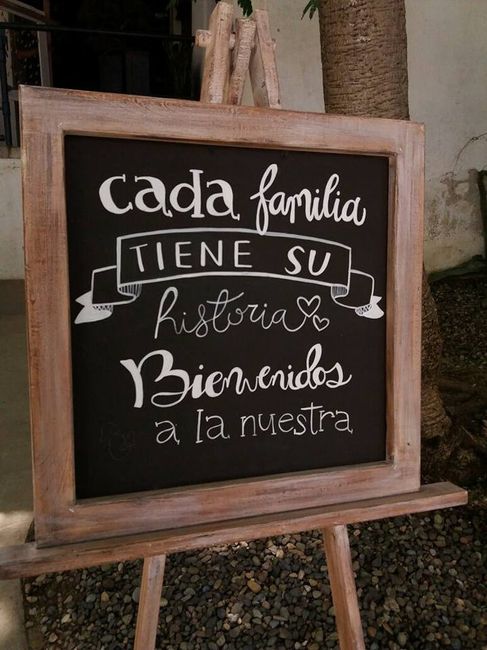 cada familia
TIENE SU
historia
Bienvenidos
a la nuestra